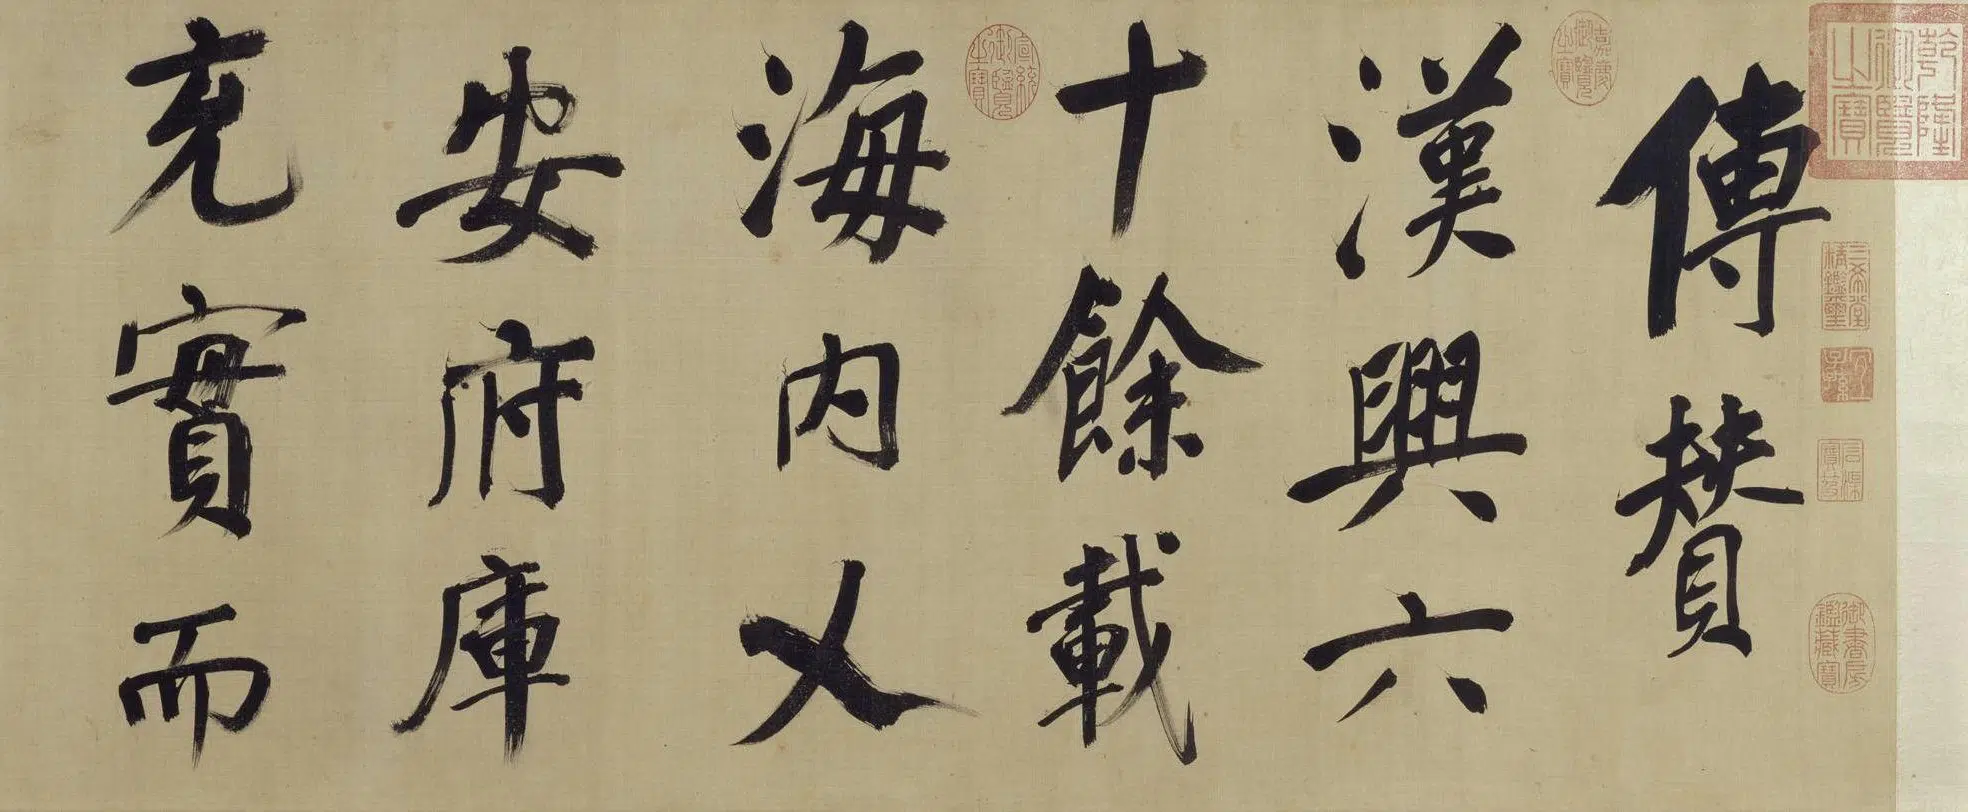 乾隆御覽之寶
三希堂精鑑璽
宜子孫
石渠寶笈
御書房鑑藏寶
傳贊
嘉慶御覽之寶
漢興六
十餘載
宣統御覽之寶
海內乂
安府庫
充實而